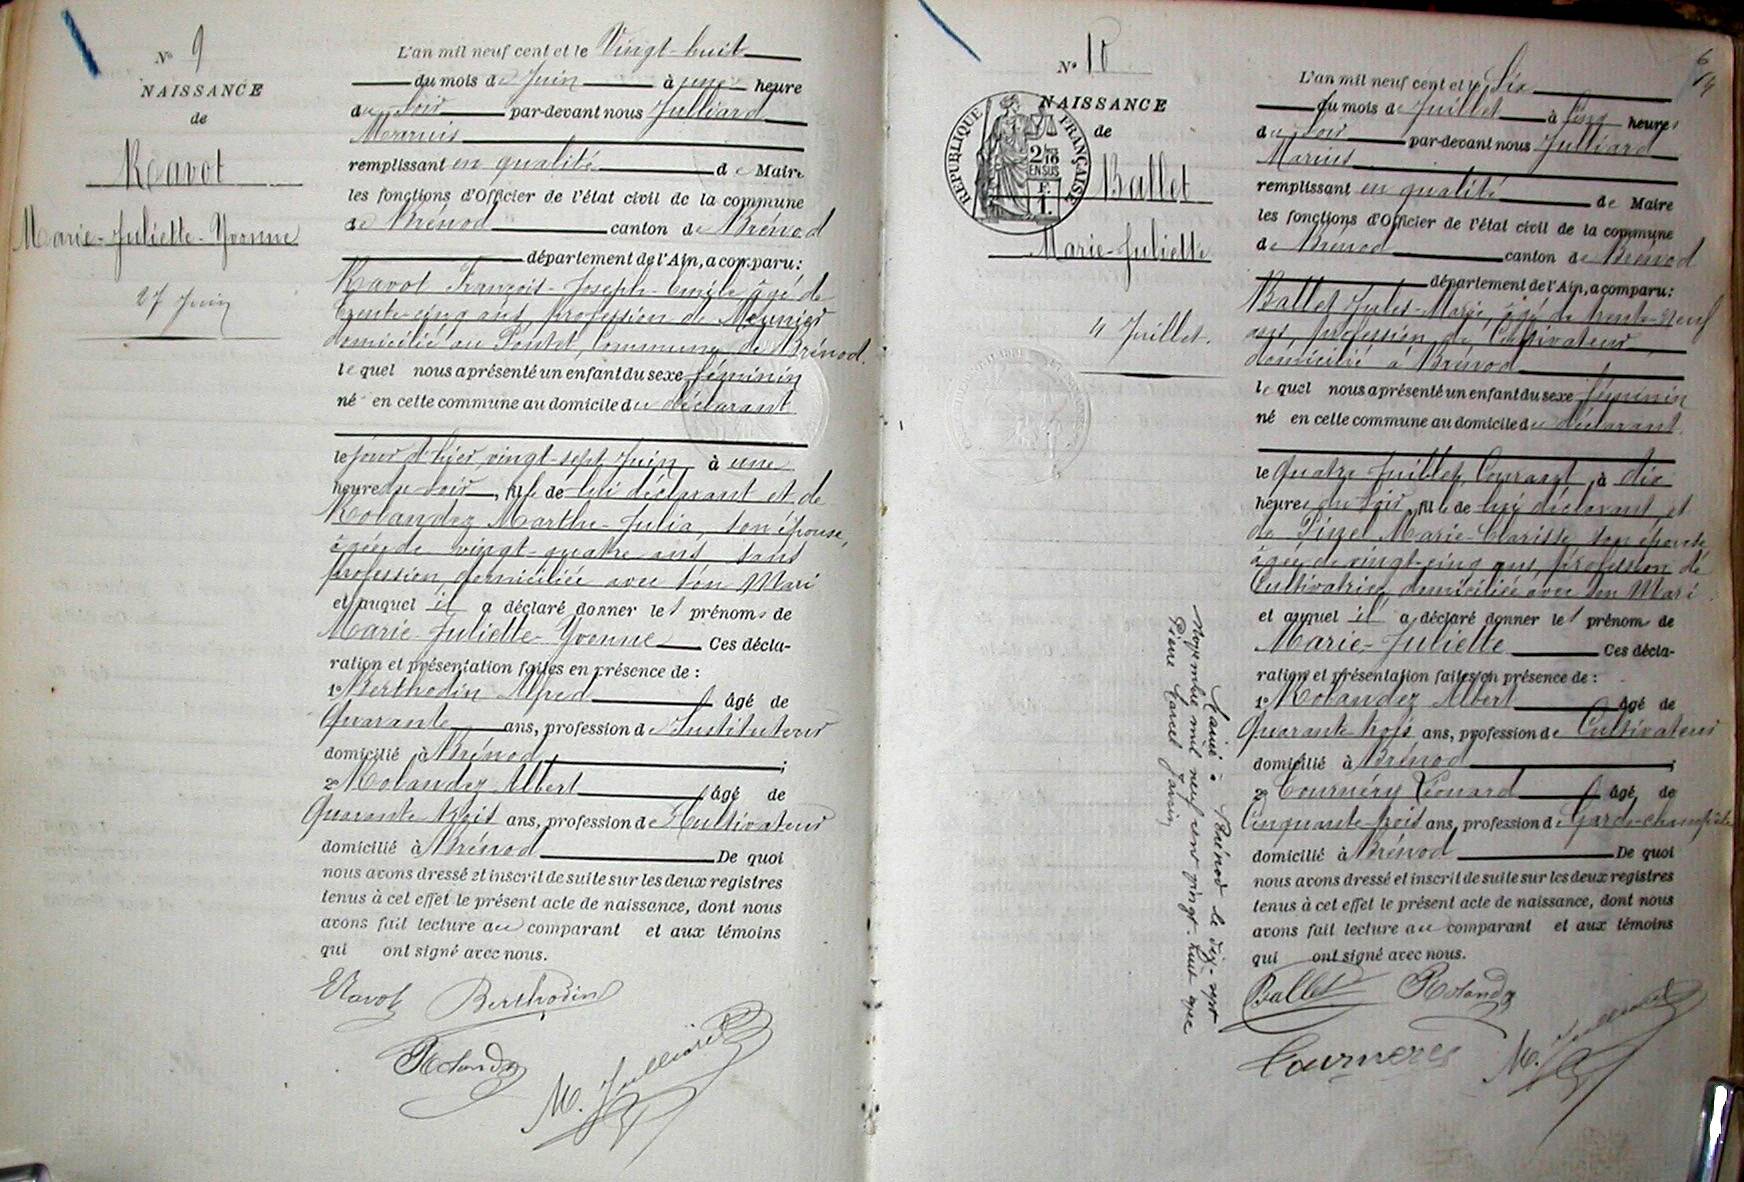 N° 9
NAISSANCE
de
Ravot
Marie-Juliette-Yvonne
27 Juin
L'an mil neuf cent et le Vingt-huit
du mois de Juin à une heure
du Soir par-devant nous Julliard
Marius
remplissant en qualité de Maire
les fonctions d'Officier de l'état civil de la commune
de Brénod canton de Brénod
département de l'Ain, a comparu:
Ravot François-Joseph-Emile âgé de
trente-cinq ans, profession de Meunier
domicilié au Pontet, Commune de Brénod.
lequel nous a présenté un enfant du sexe féminin
né en cette commune au domicile du déclarant
le jour d'hier vingt-sept Juin, à une
heure du Soir, fille de lui déclarant et de
Rolandez Marthe-Julia, son épouse,
âgée de vingt-quatre ans sans
profession, domiciliée avec son Mari
et auquel il a déclaré donner les prénoms de
Marie-Juliette-Yvonne Ces décla-
ration et présentation faites en présence de :
1° Berthodin Alfred âgé de
Quarante ans, profession d'Instituteur
domicilié à Brénod ;
2° Rolandez Albert âgé de
Quarante trois ans, profession de Cultivateur
domicilié à Brénod De quoi
nous avons dressé et inscrit de suite sur les deux registres
tenus à cet effet le présent acte de naissance, dont nous
avons fait lecture au comparant et aux témoins
qui ont signé avec nous.
ERavot Berthodin
Rolandez
M. Julliard
N° 10
NAISSANCE
de
REPUBLIQUE FRANÇAISE
2/10
EN SUS
Ballet
Marie-Juliette
4 Juillet.
L'an mil neuf cent et le Six
du mois de Juillet à cinq heures
du Soir par-devant nous Julliard
Marius
remplissant en qualité de Maire
les fonctions d'Officier de l'état civil de la commune
de Brénod canton de Brénod
département de l'Ain, a comparu:
Ballet Jules-Marie, âgé de trente-neuf
ans, profession de Cultivateur
domicilié à Brénod
lequel nous a présenté un enfant du sexe féminin
né en cette commune au domicile du déclarant
le Quatre Juillet Courant, à dix
heures du Soir, fille de lui déclarant et
de Pinel Marie-Clarisse son épouse
âgée de vingt-cinq ans, profession de
Cultivatrice domiciliée avec son Mari
et auquel il a déclaré donner les prénoms de
Marie-Juliette Ces décla-
ration et présentation faites en présence de :
1° Rolandez Albert âgé de
Quarante trois ans, profession de Cultivateur
domicilié à Brénod ;
2° Tournéry Léonard âgé de
Cinquante-trois ans, profession de Garde-champêtre
domicilié à Brénod De quoi
nous avons dressé et inscrit de suite sur les deux registres
tenus à cet effet le présent acte de naissance, dont nous
avons fait lecture au comparant et aux témoins
qui ont signé avec nous.
Ballet Rolandez
M. Julliard
Mariée à Brénod le dix-sept
Novembre mil neuf cent vingt-huit avec
Pierre Marcel